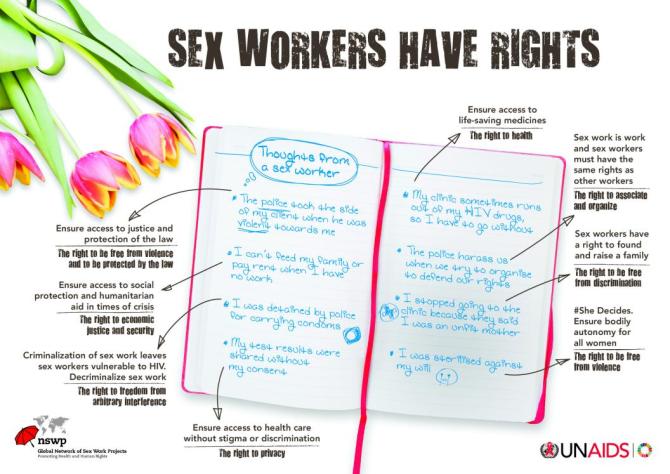 SEX WORKERS HAVE RIGHTS
Thoughts from
a sex worker
• The police took the side
of my client when he was
violent towards me
• I can't feed my family or
pay rent when I have
no work
• I was detained by police
for carrying condoms
• My test results were
shared without
my consent
• My clinic sometimes runs
out of my HIV drugs,
so I have to go without
• The police harass us
when we try to organise
to defend our rights
• I stopped going to the
clinic because they said
I was an unfit mother
• I was sterilised against
my will
Ensure access to justice and
protection of the law
The right to be free from violence
and to be protected by the law
Ensure access to social
protection and humanitarian
aid in times of crisis
The right to economic
justice and security
Criminalization of sex work leaves
sex workers vulnerable to HIV.
Decriminalize sex work
The right to freedom from
arbitrary interference
Ensure access to health care
without stigma or discrimination
The right to privacy
Ensure access to
life-saving medicines
The right to health
Sex work is work
and sex workers
must have the
same rights as
other workers
The right to associate
and organize
Sex workers have
a right to found
and raise a family
The right to be free
from discrimination
#She Decides.
Ensure bodily
autonomy for
all women
The right to be free
from violence
nswp
Global Network of Sex Work Projects
Promoting Health and Human Rights
UNAIDS